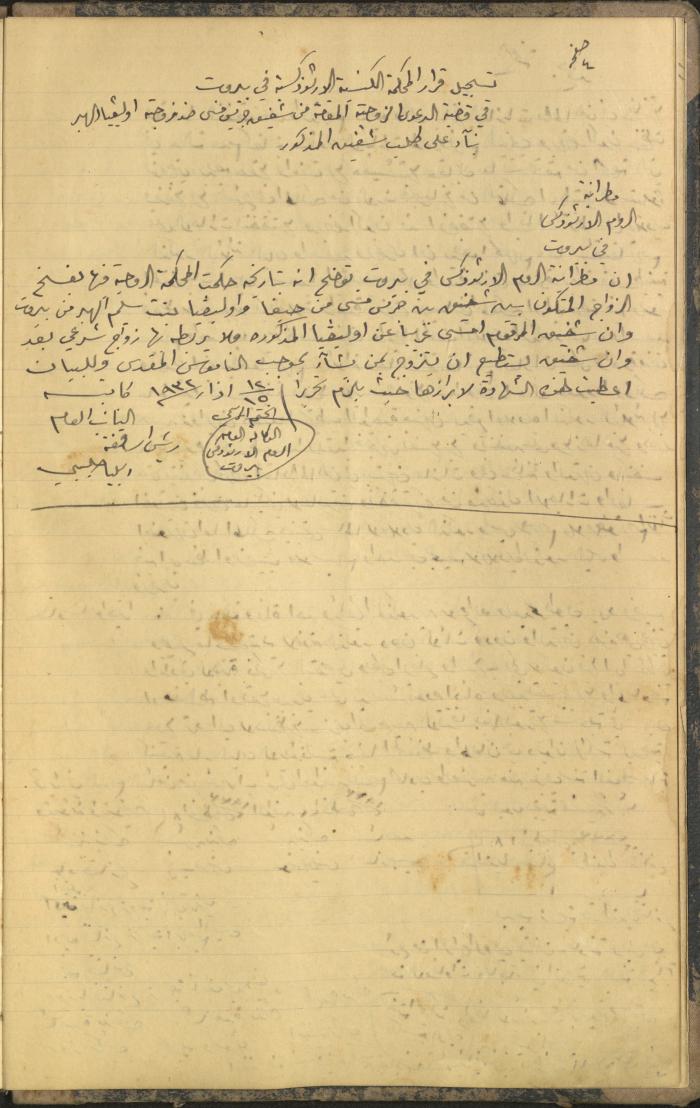 تسجيل قرار المحكمة الكنسية الارثوذكسية في بيروت
في قضية الدعوى الزوجية المقامة من شفيق جرجس منسى ضد زوجته اوليفيا الهبر
بناء على طلب شفيق المذكور
مطرانية
الروم الارثوذكس
في بيروت
ان مطرانية الروم الارثوذكس في بيروت توضح انه بتاريخه حكمت المحكمة الروحية فيها بفسخ
الزواج المتكون بين شفيق بن جرجس منسى من حيفا واوليفيا بنت سليم الهبر من بيروت
وان شفيق المرقوم امسى غريبا عن اوليفيا المذكوره ولا يربطه بها زواج شرعي بعد
وان شفيق يستطيع ان يتزوج بمن يشاء بموجب الناموس المقدس وللبيان
اعطيت هذه الشهادة لابرازها حيث يلزم تحريرا ١٢/١٥ اذار ١٩٣٢ كاتبه
النائب العام
الختم الرسمي
الوكالة العامة
الروم الارثوذكس
بيروت
رئيس اساقفة
ايليا صليبي